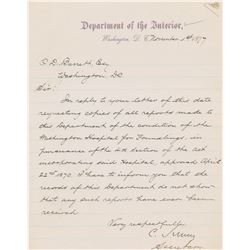 Department of the Interior,
Washington, D. C. November 1st 1877
O. D. Barrett, Esq
Washington DC
Sir:
In reply to your letter of this date
requesting copies of all reports made to
this Department of the condition of the
Washington Hospital for Foundlings, in
pursuance of the 4th section of the act
incorporating said Hospital, approved April
22nd 1870. I have to inform you that the
records of this Department do not show
that any such reports have ever been
received
Very respectfully,
C. Schurz
Secretary